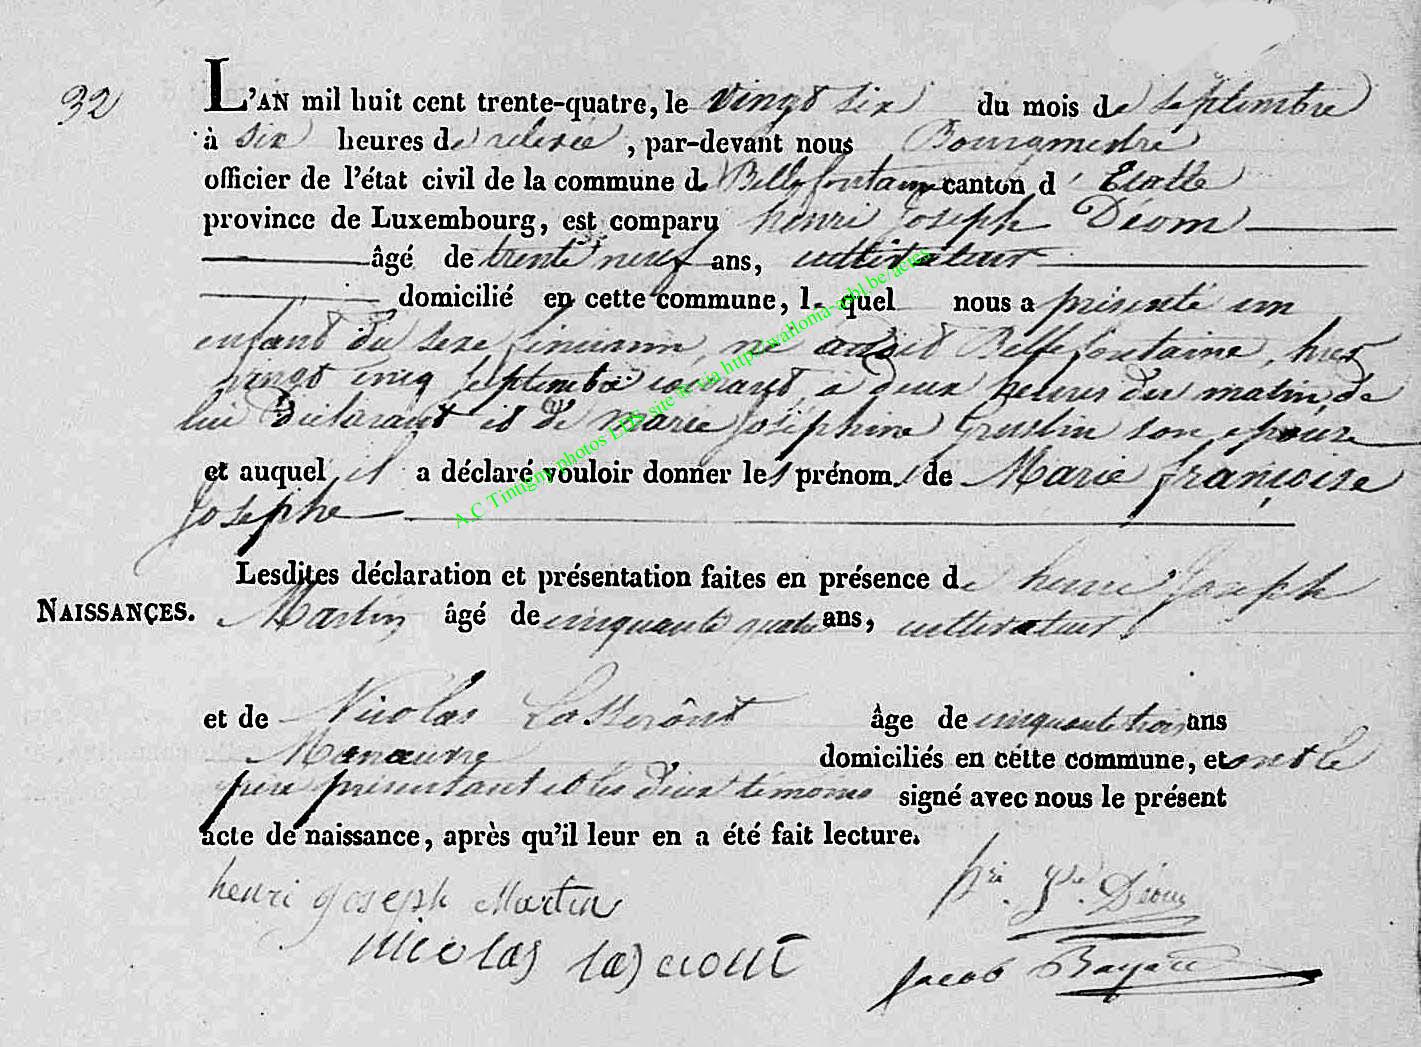 32
L'AN mil huit cent trente-quatre, le vingt six du mois de septembre
à six heures de relevée, par-devant nous Bourgmestre
officier de l'état civil de la commune de Bellefontaine canton d'Etalle
province de Luxembourg, est comparu henri Joseph Déom
âgé de trente neuf ans, cultivateur
domicilié en cette commune, lequel nous a présenté un
enfant du sexe féminin, né audit Bellefontaine, hier
vingt cinq septembre courant, à deux heures du matin, de
lui déclarant et de marie Joséphine son épouse
et auquel il a déclaré vouloir donner les prénoms de Marie françoise
Josephe
Lesdites déclaration et présentation faites en présence de henri Joseph
NAISSANÇES. Martin âgé de cinquante quatre ans, cultivateur
et de Nicolas âge de cinquante trois ans
Manœuvre domiciliés en cette commune, et ont le
père présentant et les deux témoins signé avec nous le présent
acte de naissance, après qu'il leur en a été fait lecture.
henri joseph Martin
hri. Jph. Déom
nicolas
Jacob
A.C Tintigny photos LDS site lu via http://wallonia-asbl.be/actes